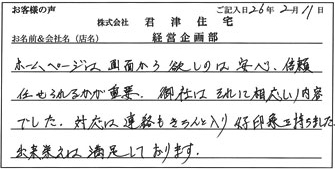 お客様の声
ご記入日26年2月11日
株式会社 君津住宅
お名前&会社名(店名) 経営企画部
ホームページは画面から欲しのは安心、信頼
任せられるかが重要。御社はそれに相応しい内容
でした。対応は連絡もきちんと入り好印象を持ちました
出来栄えは満足しております。